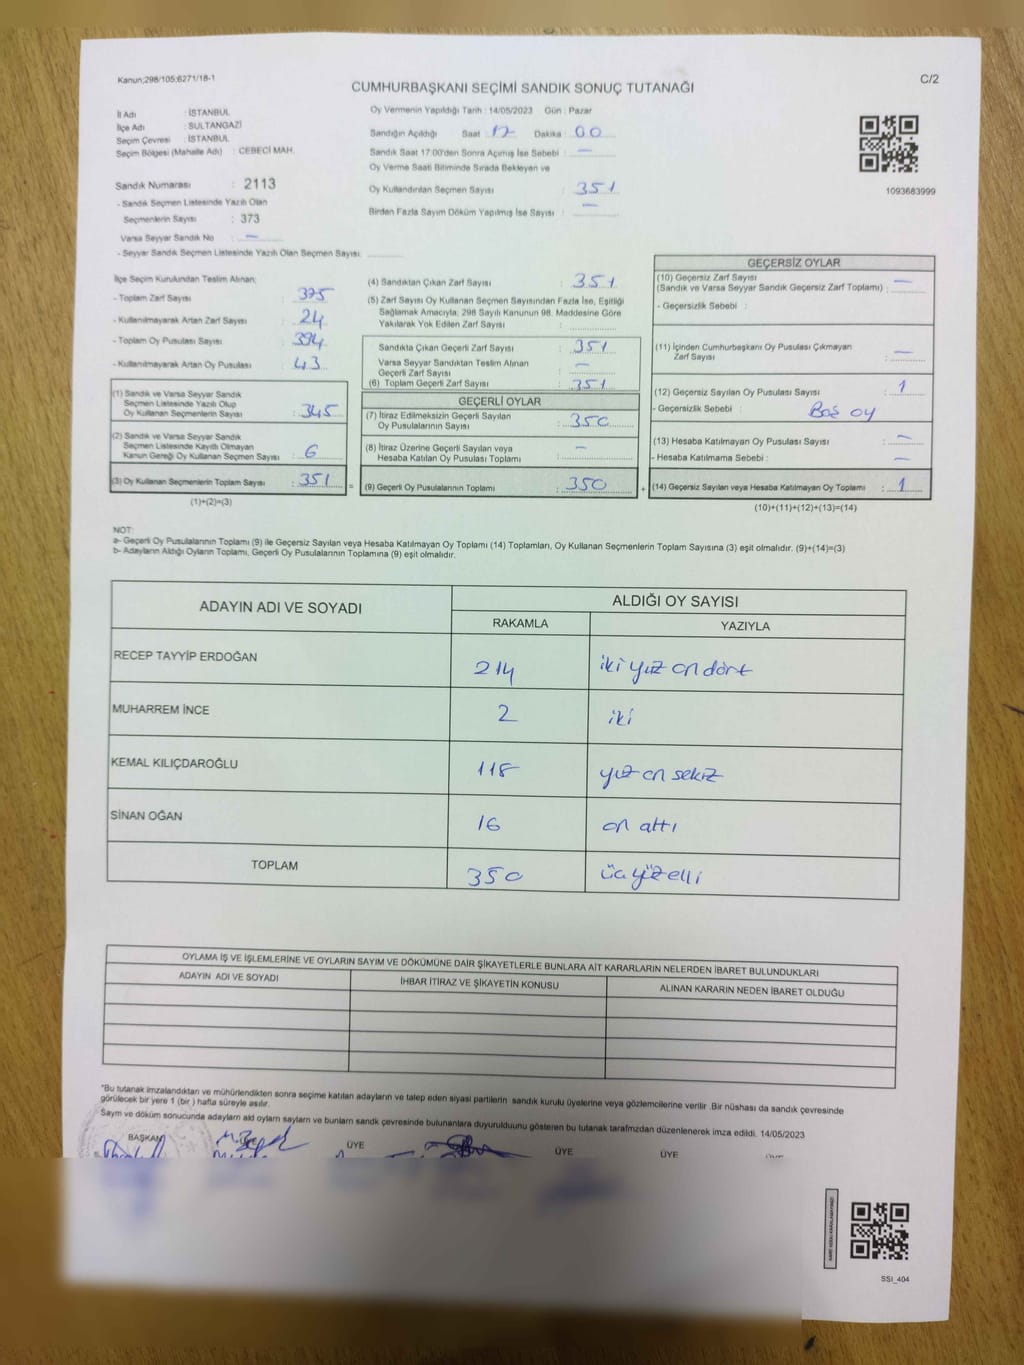 Kanun;298/105;6271/18-1
C/2
CUMHURBAŞKANI SEÇİMİ SANDIK SONUÇ TUTANAĞI
İl Adı : İSTANBUL
İlçe Adı : SULTANGAZİ
Seçim Çevresi : İSTANBUL
Seçim Bölgesi (Mahalle Adı) : CEBECİ MAH.
Sandık Numarası : 2113
- Sandık Seçmen Listesinde Yazılı Olan
Seçmenlerin Sayısı : 373
Varsa Seyyar Sandık No : —
- Seyyar Sandık Seçmen Listesinde Yazılı Olan Seçmen Sayısı:
Oy Vermenin Yapıldığı Tarih : 14/05/2023 Gün : Pazar
Sandığın Açıldığı Saat : 17 Dakika : 00
Sandık Saat 17:00'den Sonra Açımış İse Sebebi : —
Oy Verme Saati Bitiminde Sırada Bekleyen ve
Oy Kullandırılan Seçmen Sayısı : 351
Birden Fazla Sayım Döküm Yapılmış İse Sayısı : —
1093683999
İlçe Seçim Kurulundan Teslim Alınan;
- Toplam Zarf Sayısı : 375
- Kullanılmayarak Artan Zarf Sayısı : 24
- Toplam Oy Pusulası Sayısı : 394
- Kullanılmayarak Artan Oy Pusulası : 43
(1) Sandık ve Varsa Seyyar Sandık
Seçmen Listesinde Yazılı Olup
Oy Kullanan Seçmenlerin Sayısı : 345
(2) Sandık ve Varsa Seyyar Sandık
Seçmen Listesinde Kayıtlı Olmayan
Kanun Gereği Oy Kullanan Seçmen Sayısı : 6
(3) Oy Kullanan Seçmenlerin Toplam Sayısı : 351 =
(1)+(2)=(3)
(4) Sandıktan Çıkan Zarf Sayısı : 351
(5) Zarf Sayısı Oy Kullanan Seçmen Sayısından Fazla İse, Eşitliği
Sağlamak Amacıyla; 298 Sayılı Kanunun 98. Maddesine Göre
Yakılarak Yok Edilen Zarf Sayısı :
Sandıkta Çıkan Geçerli Zarf Sayısı : 351
Varsa Seyyar Sandıktan Teslim Alınan
Geçerli Zarf Sayısı : —
(6) Toplam Geçerli Zarf Sayısı : 351
GEÇERLİ OYLAR
(7) İtiraz Edilmeksizin Geçerli Sayılan
Oy Pusulalarının Sayısı : 350
(8) İtiraz Üzerine Geçerli Sayılan veya
Hesaba Katılan Oy Pusulası Toplamı : —
(9) Geçerli Oy Pusulalarının Toplamı : 350 +
GEÇERSİZ OYLAR
(10) Geçersiz Zarf Sayısı
(Sandık ve Varsa Seyyar Sandık Geçersiz Zarf Toplamı) : —
- Geçersizlik Sebebi :
(11) İçinden Cumhurbaşkanı Oy Pusulası Çıkmayan
Zarf Sayısı : —
(12) Geçersiz Sayılan Oy Pusulası Sayısı : 1
- Geçersizlik Sebebi : Boş oy
(13) Hesaba Katılmayan Oy Pusulası Sayısı : —
- Hesaba Katılmama Sebebi : —
(14) Geçersiz Sayılan veya Hesaba Katılmayan Oy Toplamı : 1
(10)+(11)+(12)+(13)=(14)
NOT:
a- Geçerli Oy Pusulalarının Toplamı (9) ile Geçersiz Sayılan veya Hesaba Katılmayan Oy Toplamı (14) Toplamları, Oy Kullanan Seçmenlerin Toplam Sayısına (3) eşit olmalıdır. (9)+(14)=(3)
b- Adayların Aldığı Oyların Toplamı, Geçerli Oy Pusulalarının Toplamına (9) eşit olmalıdır.
ADAYIN ADI VE SOYADI
ALDIĞI OY SAYISI
RAKAMLA YAZIYLA
RECEP TAYYİP ERDOĞAN 214 iki yüz on dört
MUHARREM İNCE 2 iki
KEMAL KILIÇDAROĞLU 118 yüz on sekiz
SİNAN OĞAN 16 on altı
TOPLAM 350 üç yüz elli
OYLAMA İŞ VE İŞLEMLERİNE VE OYLARIN SAYIM VE DÖKÜMÜNE DAİR ŞİKAYETLERLE BUNLARA AİT KARARLARIN NELERDEN İBARET BULUNDUKLARI
ADAYIN ADI VE SOYADI İHBAR İTİRAZ VE ŞİKAYETİN KONUSU ALINAN KARARIN NEDEN İBARET OLDUĞU
"Bu tutanak imzalandıktan ve mühürlendikten sonra seçime katılan adayların ve talep eden siyasi partilerin sandık kurulu üyelerine veya gözlemcilerine verilir .Bir nüshası da sandık çevresinde
görülecek bir yere 1 (bir ) hafta süreyle asılır.
Sayım ve döküm sonucunda adayların ald oyların sayların ve bunların sandk çevresinde bulunanlara duyurulduunu gösteren bu tutanak tarafmzdan düzenlenerek imza edildi. 14/05/2023
BAŞKAN ÜYE ÜYE ÜYE ÜYE
SSI_404